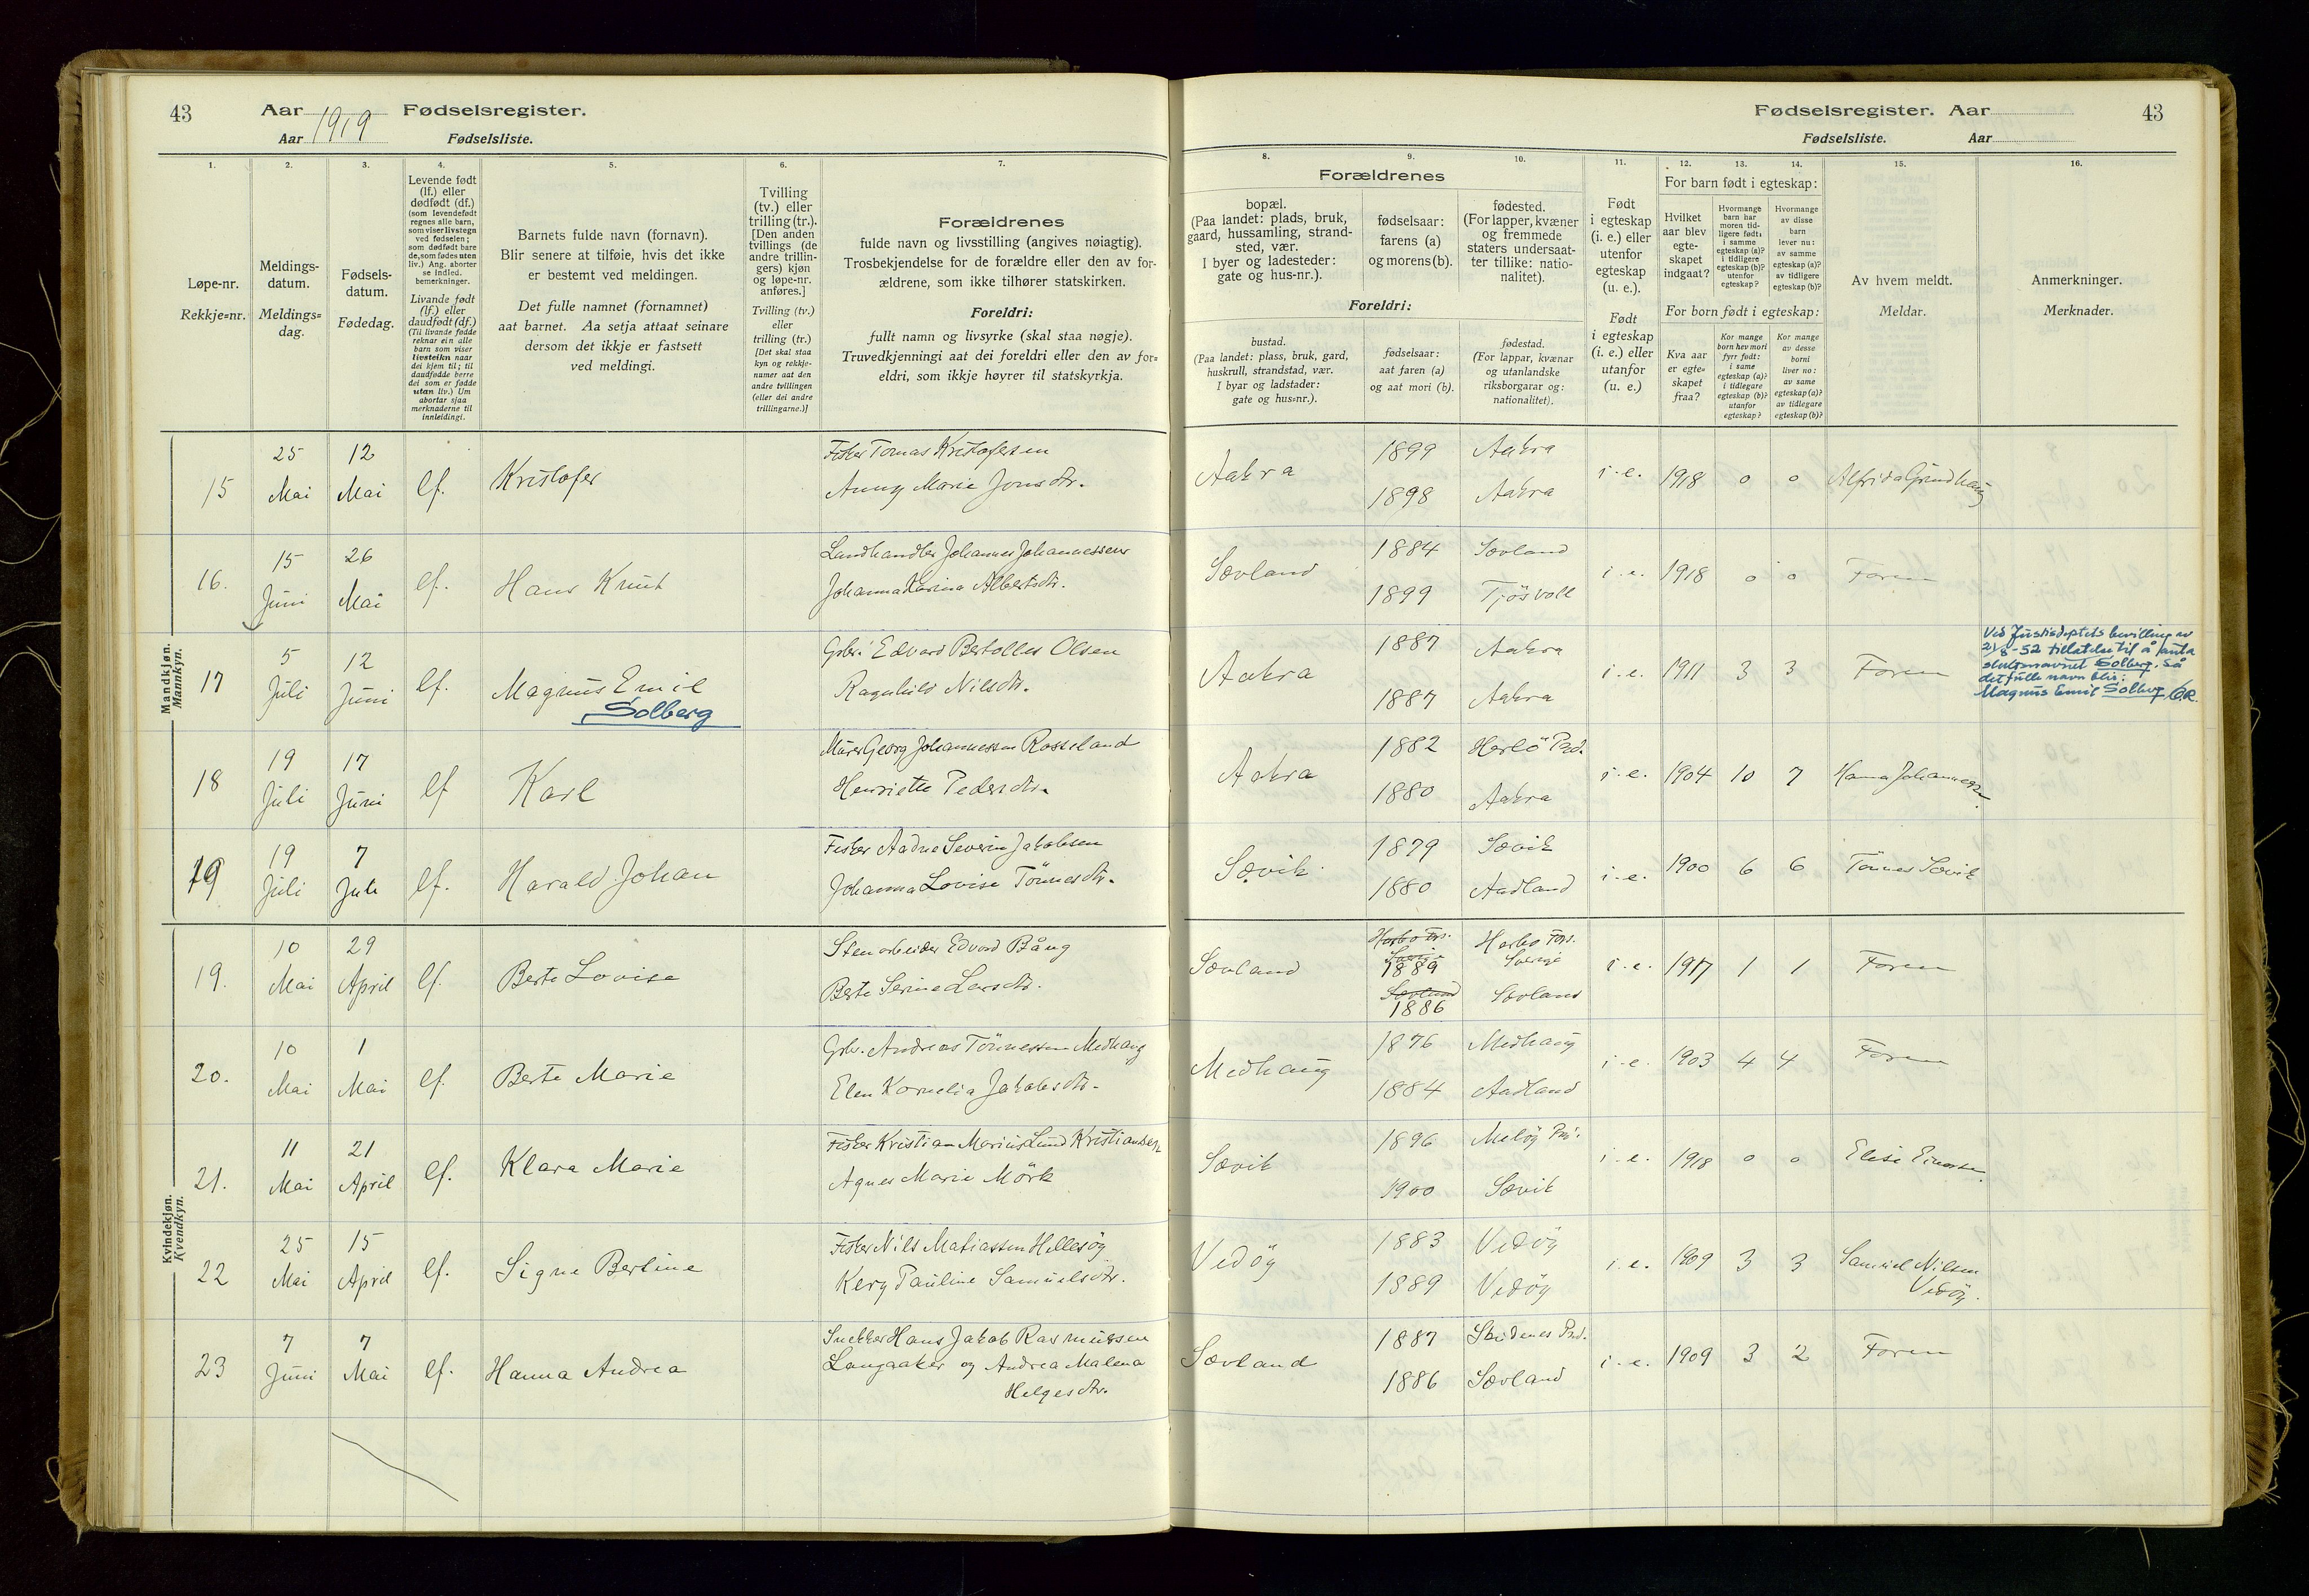 43 Aar 1919 Fødselsregister.
Aar Fødselsliste.
1. 2. 3. 4. 5. 6. 7.
Løpe-nr.
Rekkje=nr.
Meldings-
datum.
Meldings=
dag.
Fødsels-
datum.
Fødedag.
Levende født
(lf.) eller
dødfødt (df.)
(som levendefødt
regnes alle barn,
som viser livstegn
ved fødselen;
som dødfødt bare
de, som fødes uten
liv.) Ang. aborter
se indled.
bemerkninger.
Livande født
(lf.) eller
daudfødt (df.)
(Til livande fødde
reknar ein alle
barn som viser
livsteikn naar
dei kjem til; til
daudfødde berre
dei som er fødde
utan liv.) Um
abortar sjaa
merknaderne til
innleidingi.
Barnets fulde navn (fornavn).
Blir senere at tilføie, hvis det ikke
er bestemt ved meldingen.
Det fulle namnet (fornamnet)
aat barnet. Aa setja attaat seinare
dersom det ikkje er fastsett
ved meldingi.
Tvilling
(tv.) eller
trilling (tr.).
[Den anden
tvillings (de
andre trillin-
gers) kjøn
og løpe-nr.
anføres.]
Tvilling (tv.)
eller
trilling (tr.)
[Det skal staa
kyn og rekkje-
numer aat den
andre tvillingen
(eller dei andre
trillingarne.)]
Forældrenes
fulde navn og livsstilling (angives nøiagtig).
Trosbekjendelse for de forældre eller den av for-
ældrene, som ikke tilhører statskirken.
Foreldri:
fullt namn og livsyrke (skal staa nøgje).
Truvedkjenningi aat dei foreldri eller den av for=
eldri, som ikkje høyrer til statskyrkja.
Fødselsregister. Aar 43
Fødselsliste. Aar
8. 9. 10. 11. 12. 13. 14. 15. 16.
Forældrenes
bopæl.
(Paa landet: plads, bruk,
gaard, hussamling, strand-
sted, vær.
I byer og ladesteder:
gate og hus-nr.).
fødselsaar:
farens (a)
og morens (b).
fødested.
(For lapper, kvæner
og fremmede
staters undersaat-
ter tillike: natio-
nalitet).
Foreldri:
bustad.
(Paa landet: plass, bruk, gard,
huskrull, strandstad, vær.
I byar og ladstader:
gate og hus=nr.).
fødselsaar:
aat faren (a)
og aat mori (b).
fødestad.
(For lappar, kvænar
og utanlandske
riksborgarar og:
nationalitet).
Født
i egteskap
(i. e.) eller
utenfor
egteskap
(u. e.).
Født
i egteskap
(i. e.) eller
utanfor
(u. e.)
For barn født i egteskap:
Hvilket
aar blev
egte-
skapet
indgaat?
Hvormange
barn har
moren tid-
ligere født:
i samme
egteskap (a)?
i tidligere
egteskap (b)?
utenfor
egteskap?
Hvormange
av disse
barn
lever nu:
av samme
egteskap (a)?
av tidligere
egteskap (b)?
For born født i egteskap:
Kva aar
er egte=
skapet
fraa?
Kor mange
born hev mori
fyrr født:
i same
egteskap (a)?
i tidlegare
egteskap (b)?
utanfor
egteskap?
Kor mange
av desse
borni
liver no:
av same
egteskap (a)?
av tidlegare
egteskap (b)?
Av hvem meldt.
Meldar.
Anmerkninger.
Merknader.
Mandkjøn.
Mannkyn.
15 25 Mai 12 Mai lf. Kristofer Fisker Tomas Kristofersen
Anny Marie Jonsdtr.
Aakra 1899 Aakra i.e. 1918 0 0 Alfrida Grindhaug
1898 Aakra
16. 15 Juni 26 Mai lf. Hans Knut Landhandler Johannes Johannessen
Johanna Karina Albertsdtr.
Sævland 1884 Sævland i.e. 1918 0 0 Faren
1899 Tjösvoll
17 5 Juli 12 Juni lf. Magnus Emil Grbr. Edvard Bertolles Olsen
Solberg Ragnhild Nilsdtr.
Aakra 1887 Aakra i.e. 1911 3 3 Faren
1887 Aakra
Ved Justisdeptets bevilling av
21/8-52 tillatelse til å anta
slektsnavnet Solberg. så
det fulle navn blir:
Magnus Emil Solberg
18 19 Juli 17 Juni lf Karl Murer Georg Johannessen Rosseland
Henriette Pedersdtr.
Aakra 1882 Herlö Prd. i.e. 1904 10 7 Hanna Johannessen
1880 Aakra
19 19 Juli 7 Juli lf. Harald Johan Fisker Aadne Severin Jakobsen
Johanna Lovise Tönnesdtr.
Sævik 1879 Sævik i.e. 1900 6 6 Tönnes Sævik
1880 Aadland
Kvindekjøn.
Kvendkyn.
19. 10 Mai 29 April lf. Berte Lovise Stenarbeider Edvard Bång
Berte Serine Larsdtr.
Sævland 1889 Harbo Fors. Sverige i.e. 1917 1 1 Faren
Sævland 1886 Sævland
20. 10 Mai 1 Mai lf. Berte Marie Grbr. Andreas Tönnessen Medhaug
Elen Kornelia Jakobsdtr.
Medhaug 1876 Medhaug i.e. 1903 4 4 Faren
1884 Aadland
21. 11 Mai 21 April lf. Klara Marie Fisker Kristian Marius Lund Kristiansen
Agnes Marie Mörk
Sævik 1896 Melöy Prd. i.e. 1918 0 0 Elise Einarsen
1900 Sævik
22 25 Mai 15 April lf. Signe Bertine Fisker Nils Matiassen Hellesöy
Kery Pauline Samuelsdtr.
Vedöy 1883 Vedöy i.e. 1909 3 3 Samuel Nilsen
Vedöy.
1889 Vedöy
23 7 Juni 7 Mai lf. Hanna Andrea Snekker Hans Jakob Rasmussen
Langaaker og Andrea Malena
Helgesdtr.
Sævland 1887 Skudenes Prd. i.e. 1909 3 2 Faren
1886 Sævland